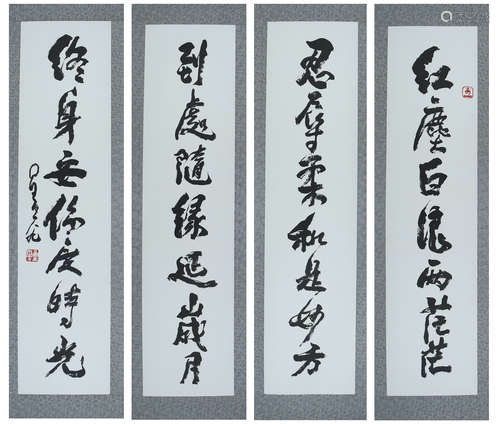 红尘白浪两茫茫
忍辱柔和是妙方
到處隨緣延歲月
終身安份度時光